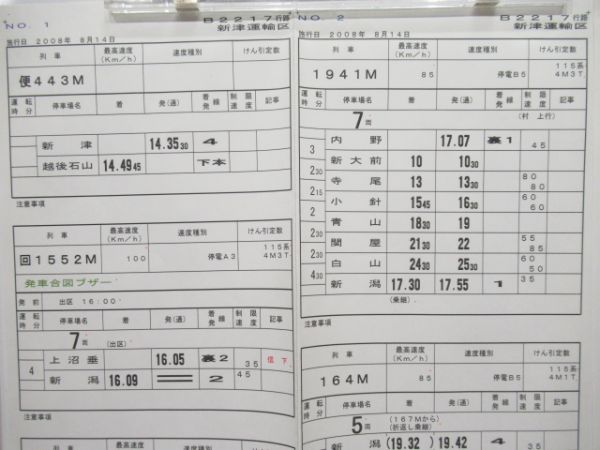 NO. 1
B2217行路
新津運輸区
施行日 2008年 8月14日
列車 最高速度(Km/h) 速度種別 けん引定数
便443M
運転時分 停車場名 着 発(通) 着発線 制限速度 記事
新津 14.35 30 4
越後石山 14.49 45 下本
注意事項
列車 最高速度(Km/h) 速度種別 けん引定数
回1552M 100 停電A3 115系 4M3T
発車合図ブザー
発前 出区 16:00
運転時分 停車場名 着 発(通) 着発線 制限速度 記事
7両 (出区)
上沼垂 16.05 裏2 35 信下
4
新潟 16.09 2 45
注意事項
NO. 2
B2217行路
新津運輸区
施行日 2008年 8月14日
列車 最高速度(Km/h) 速度種別 けん引定数
1941M 85 停電B5 115系 4M3T
運転時分 停車場名 着 発(通) 着発線 制限速度 記事
7両 (村上行)
内野 17.07 裏1 45
3
新大前 10 10 30
2 30
寺尾 13 13 30 80 80
2 15
小針 15 45 16 30 60 60
2
青山 18 30 19
2 30
関屋 21 30 22 55 85
2 30
白山 24 30 25 30 60 50
4 30
新潟 17.30 17.55 1 35
(乗継)
注意事項
列車 最高速度(Km/h) 速度種別 けん引定数
164M 85 停電B5 115系 4M1T
運転時分 停車場名 着 発(通) 着発線 制限速度 記事
5両 (167Mから)
(折返し乗継)
新潟 (19.32) 19.42 4 35